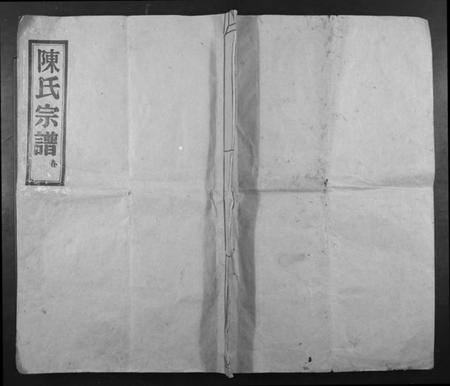 陳氏宗譜
春